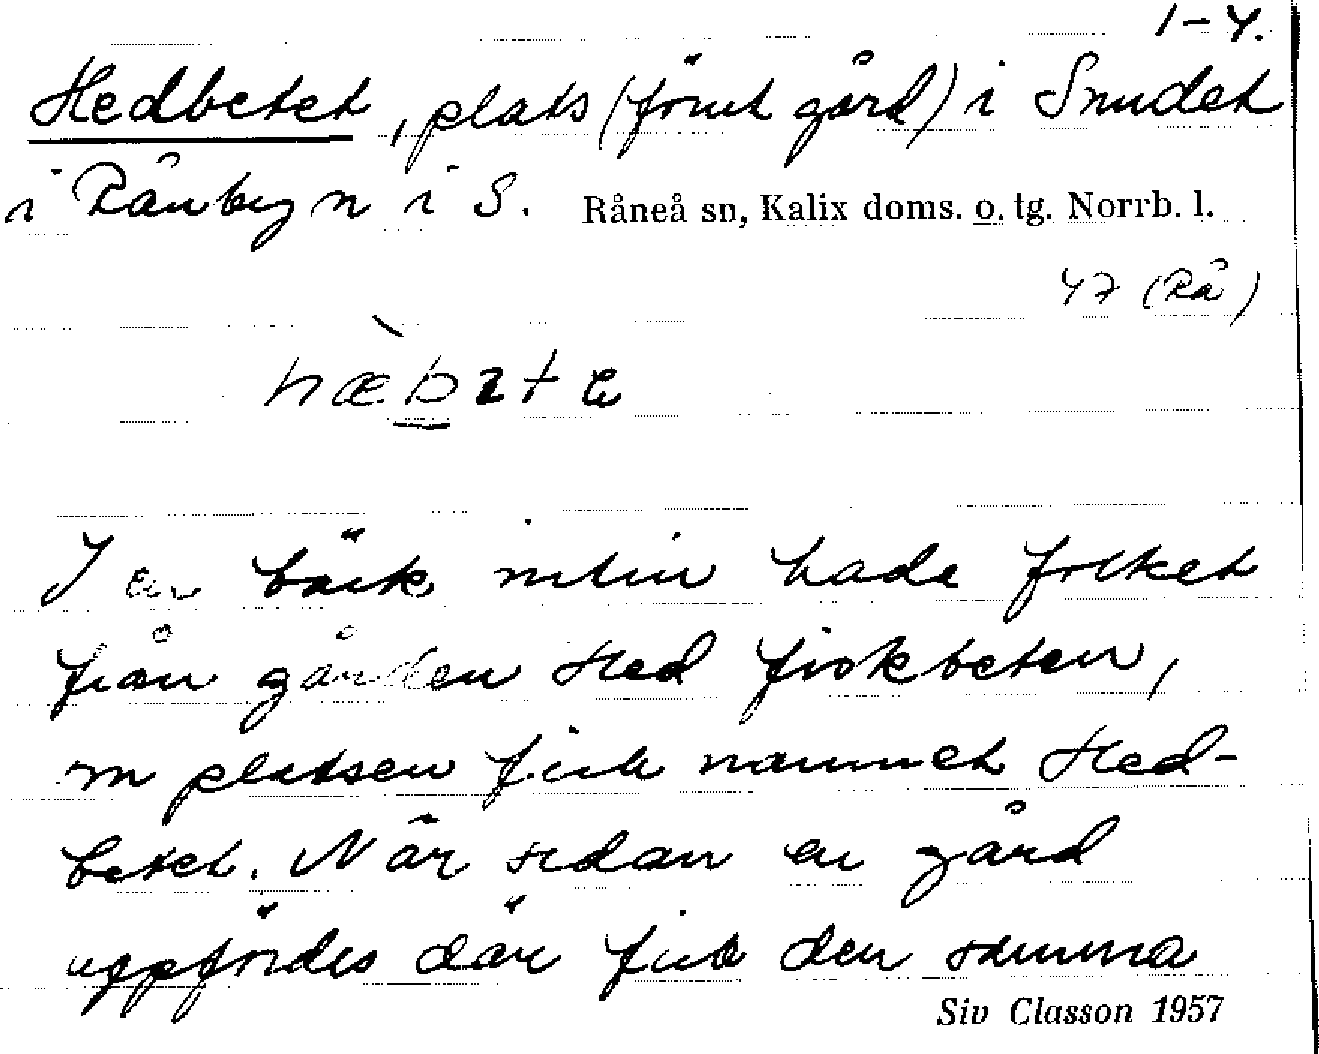 1-4.
Hedbetet, plats (förut gård) i Snudet
i Rånbyn i S. Råneå sn, Kalix doms. o. tg. Norrb. l.
47 (Rå)
I en bäck intill hade folket
från gården Hed fiskbeten,
platsen fick namnet Hed-
betet. När sedan en gård
uppfördes där fick den samma
Siv Classon 1957